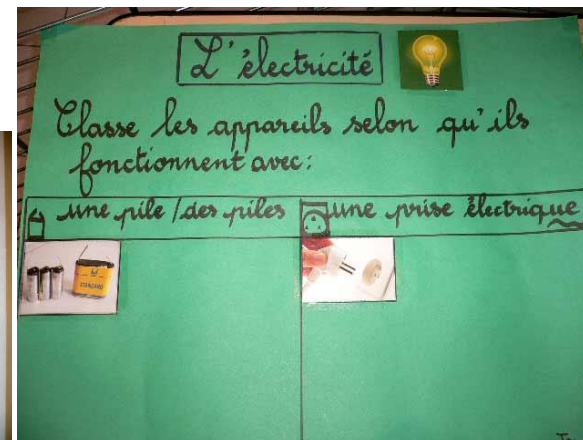 L'électricité
Classe les appareils selon qu'ils
fonctionnent avec:
une pile / des piles
une prise électrique
STANDARD